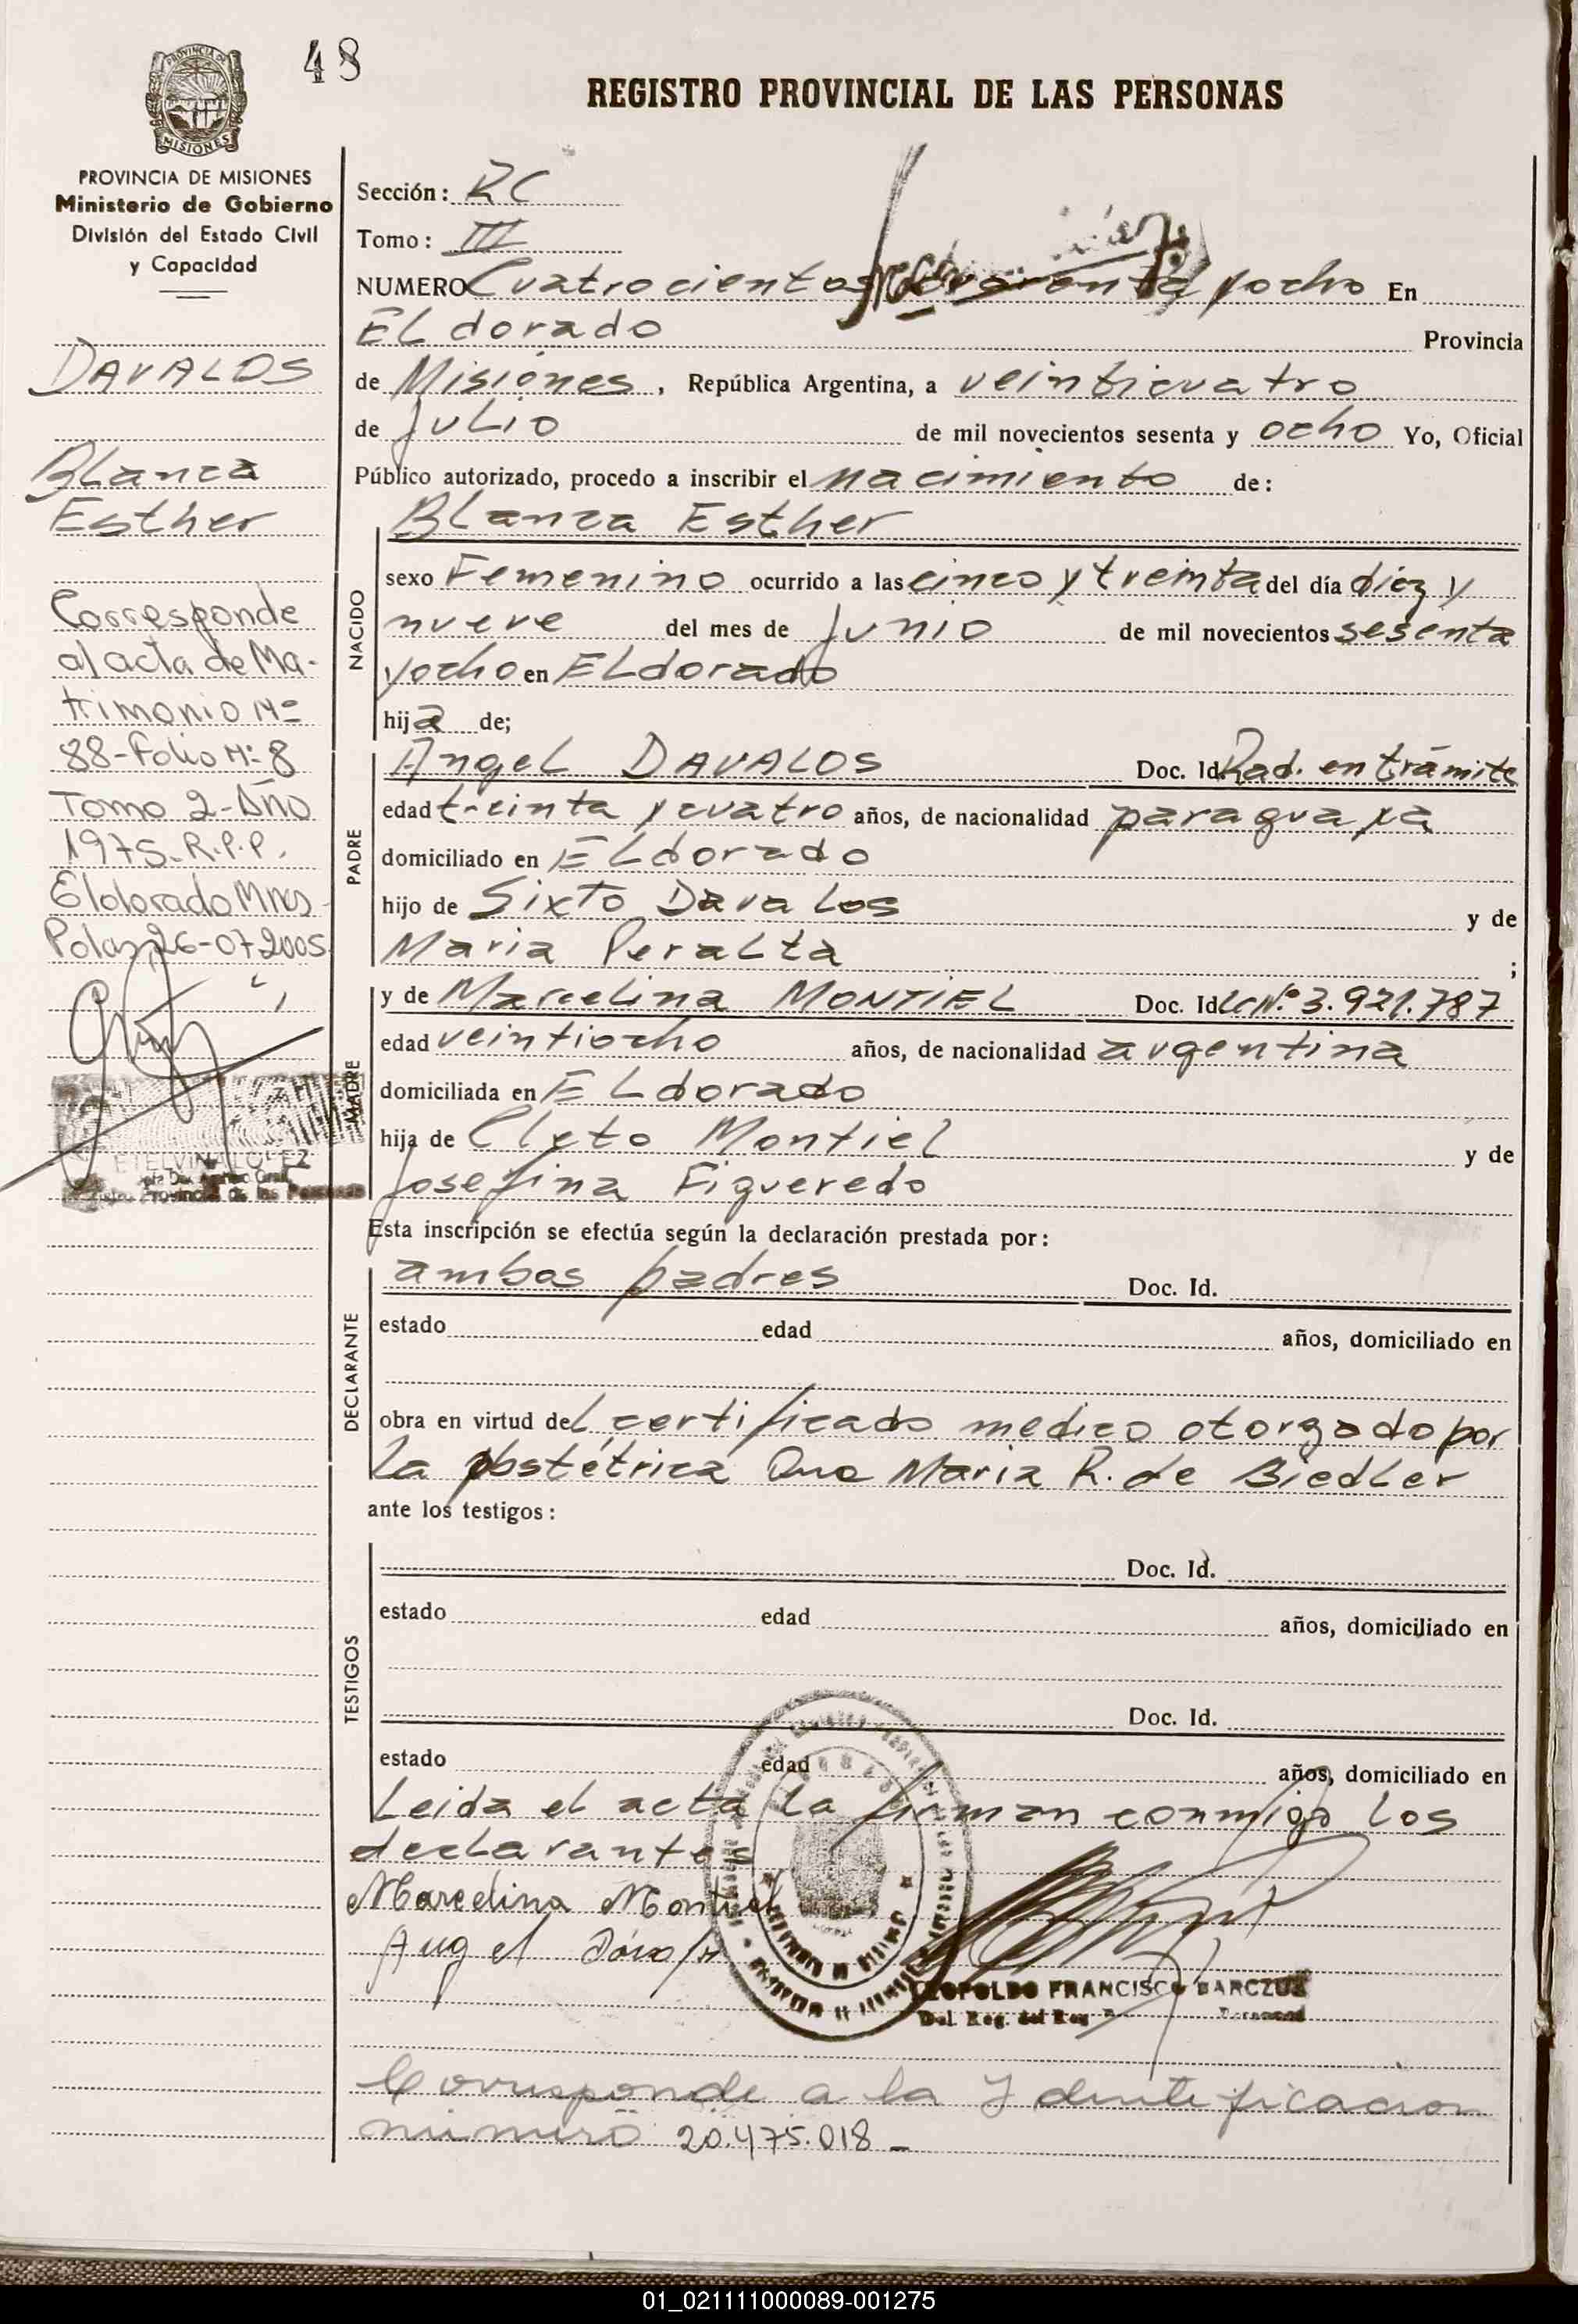 48
REGISTRO PROVINCIAL DE LAS PERSONAS
PROVINCIA DE MISIONES
Ministerio de Gobierno
División del Estado Civil
y Capacidad
DAVALOS
Blanca
Esther
Corresponde
al acta de Ma-
trimonio Nº
88-Folio Nº 8
Tomo 2-Año
1975-R.P.P.
Eldorado Mnes
26-07-2005
ETELVINA LOPEZ
Sección: RC
Tomo: III
NUMERO Cuatrocientos cuarenta y ocho En
Eldorado Provincia
de Misiones, República Argentina, a veinticuatro
de Julio de mil novecientos sesenta y ocho Yo, Oficial
Público autorizado, procedo a inscribir el nacimiento de:
Blanca Esther
NACIDO
sexo Femenino ocurrido a las cinco y treinta del día diez y
nueve del mes de Junio de mil novecientos sesenta
y ocho en Eldorado
hija de;
PADRE
Angel DAVALOS Doc. Id. Rad. en trámite
edad treinta y cuatro años, de nacionalidad paraguaya
domiciliado en Eldorado
hijo de Sixto Davalos y de
Maria Peralta ;
MADRE
y de Marcelina MONTIEL Doc. Id. LC Nº 3.921.787
edad veintiocho años, de nacionalidad argentina
domiciliada en Eldorado
hija de Cleto Montiel y de
Josefina Figueredo
Esta inscripción se efectúa según la declaración prestada por:
DECLARANTE
ambos padres Doc. Id.
estado edad años, domiciliado en
obra en virtud del certificado medico otorgado por
la obstétrica Dna Maria R. de Biedler
ante los testigos:
TESTIGOS
Doc. Id.
estado edad años, domiciliado en
Doc. Id.
estado edad años, domiciliado en
Leida el acta la firman conmigo los
declarantes
Marcelina Montiel
Angel
LEOPOLDO FRANCISCO BARCZUK
Corresponde a la Identificacion
numero 20.475.018 -
01_021111000089-001275